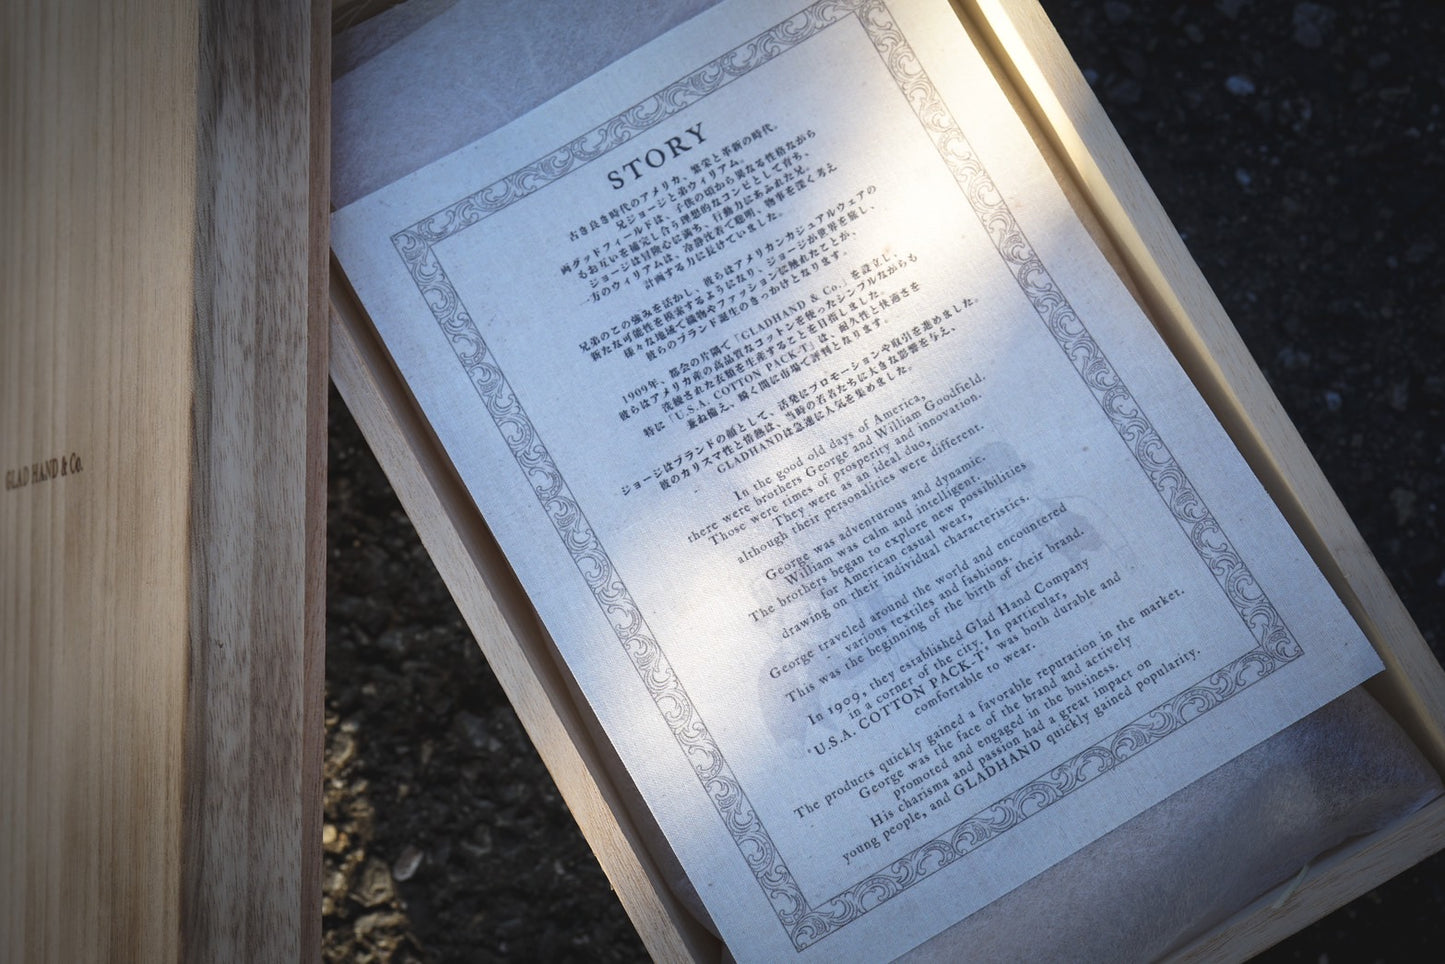 GLAD HAND & Co.
STORY
古き良き時代のアメリカ、繁栄と革新の時代。
兄ジョージと弟ウィリアム。
両グッドフィールドは、子供の頃から異なる性格ながら
もお互いを補完し合う理想的なコンビとして育ち、
ジョージは冒険心に満ち、行動力にあふれた兄。
一方のウィリアムは、冷静沈着で聡明、物事を深く考え
計画する力に長けていました。
兄弟のこの強みを活かし、彼らはアメリカンカジュアルウェアの
新たな可能性を模索するようになり、ジョージが世界を旅し、
様々な地域で織物やファッションに触れたことが、
彼らのブランド誕生のきっかけとなります。
1909年、都会の片隅で「GLADHAND & Co.」を設立し、
彼らはアメリカ産の高品質なコットンを使ったシンプルながらも
洗練された衣類を生産することを目指しました。
特に「U.S.A. COTTON PACK-T」は、耐久性と快適さを
兼ね備え、瞬く間に市場で評判となります。
ジョージはブランドの顔として、活発にプロモーションや取引を進めました。
彼のカリスマ性と情熱は、当時の若者たちに大きな影響を与え、
GLADHANDは急速に人気を集めました。
In the good old days of America,
there were brothers George and William Goodfield.
Those were times of prosperity and innovation.
They were as an ideal duo,
although their personalities were different.
George was adventurous and dynamic.
William was calm and intelligent.
The brothers began to explore new possibilities
for American casual wear,
drawing on their individual characteristics.
George traveled around the world and encountered
various textiles and fashions.
This was the beginning of the birth of their brand.
In 1909, they established Glad Hand Company
in a corner of the city. In particular,
"U.S.A. COTTON PACK-T" was both durable and
comfortable to wear.
The products quickly gained a favorable reputation in the market.
George was the face of the brand and actively
promoted and engaged in the business.
His charisma and passion had a great impact on
young people, and GLADHAND quickly gained popularity.